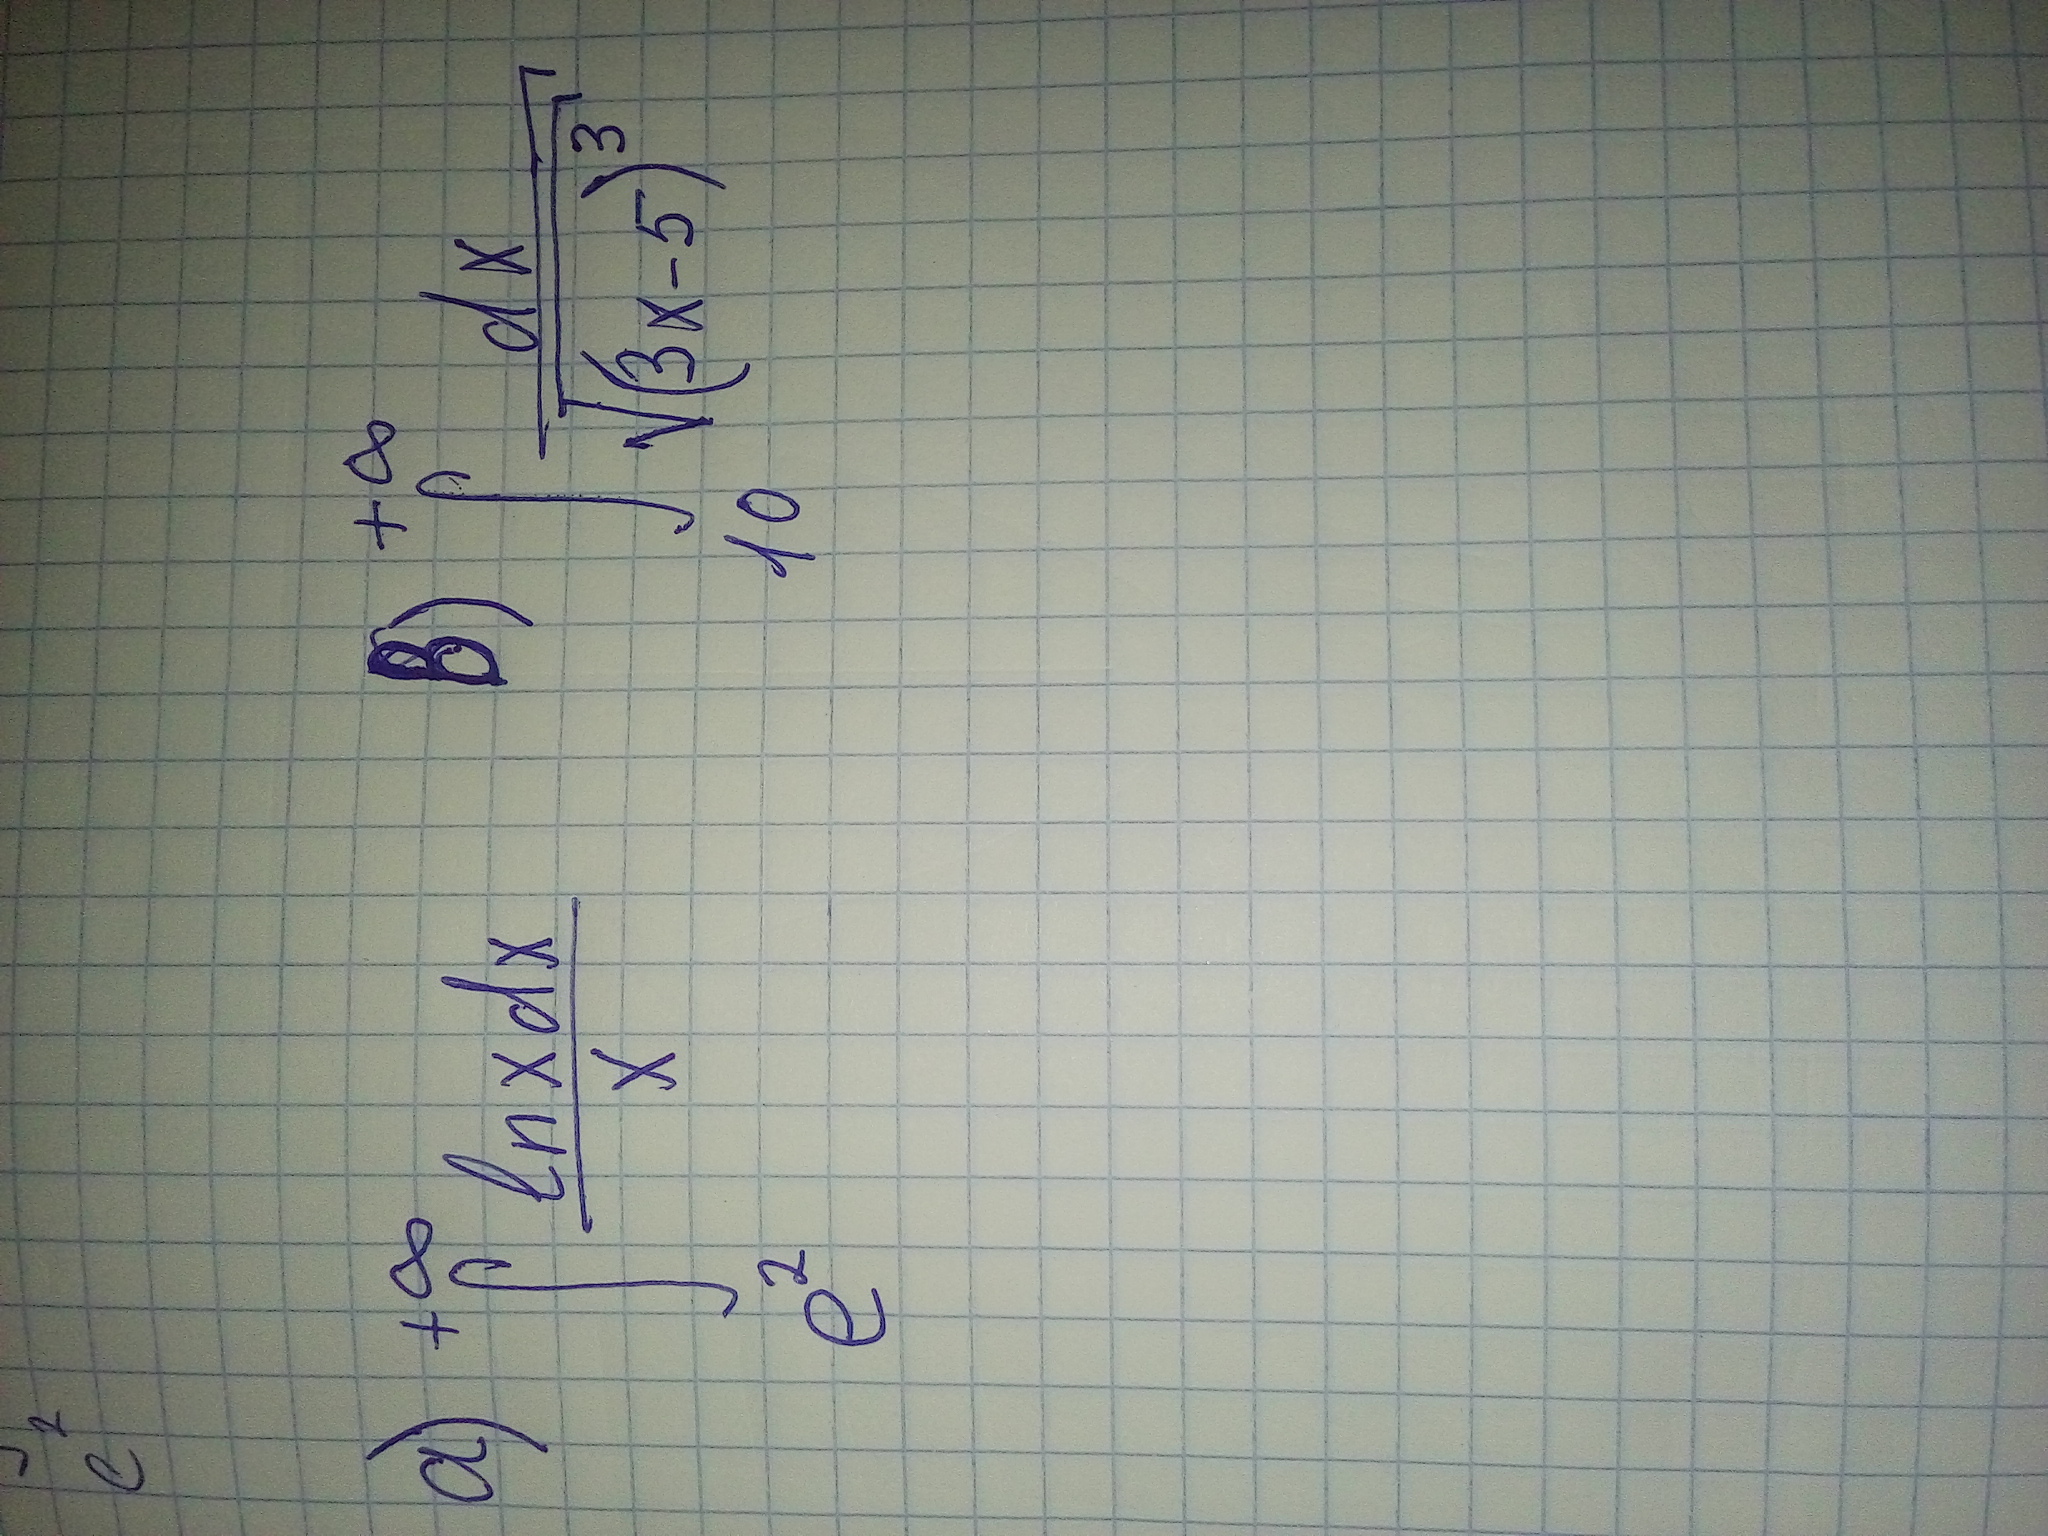 e²
a) +∞ ∫ e² ln x dx / x
B) +∞ ∫ 10 dx / √(3x-5)³